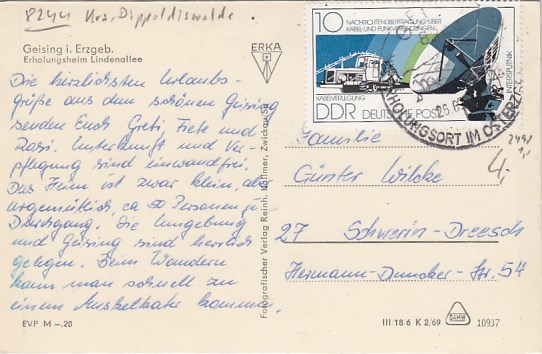 8244 Krs. Dippoldiswalde.
Geising i. Erzgeb.
Erholungsheim Lindenallee
Die herzlichsten Urlaubs-
grüße aus dem schönen Geising
senden Euch Greti, Fiete und
Rosi. Unterkunft und Ver-
pflegung sind einwandfrei.
Das Heim ist zwar klein, aber
urgemütlich, ca 50 Personen je
Durchgang. Die Umgebung
und Geising sind herrlich
gelegen. Beim Wandern
kann man schnell zu
einem Muskelkater kommen.
EVP M –.20
ERKA
Fotografischer Verlag Reinh. Kallmer, Zwickau Sa.
10
NACHRICHTENÜBERTRAGUNG ÜBER
KABEL- UND FUNKVERBINDUNGEN
INTERSPUTNIK
KABELVERLEGUNG
DDR DEUTSCHE POST
ERHOLUNGSORT IM OSTERZ
Familie
Günter Wilcke
27 Schwerin-Dreesch
Hermann-Duncker-Str. 54
4,
III 18 6 K 2/69
10937